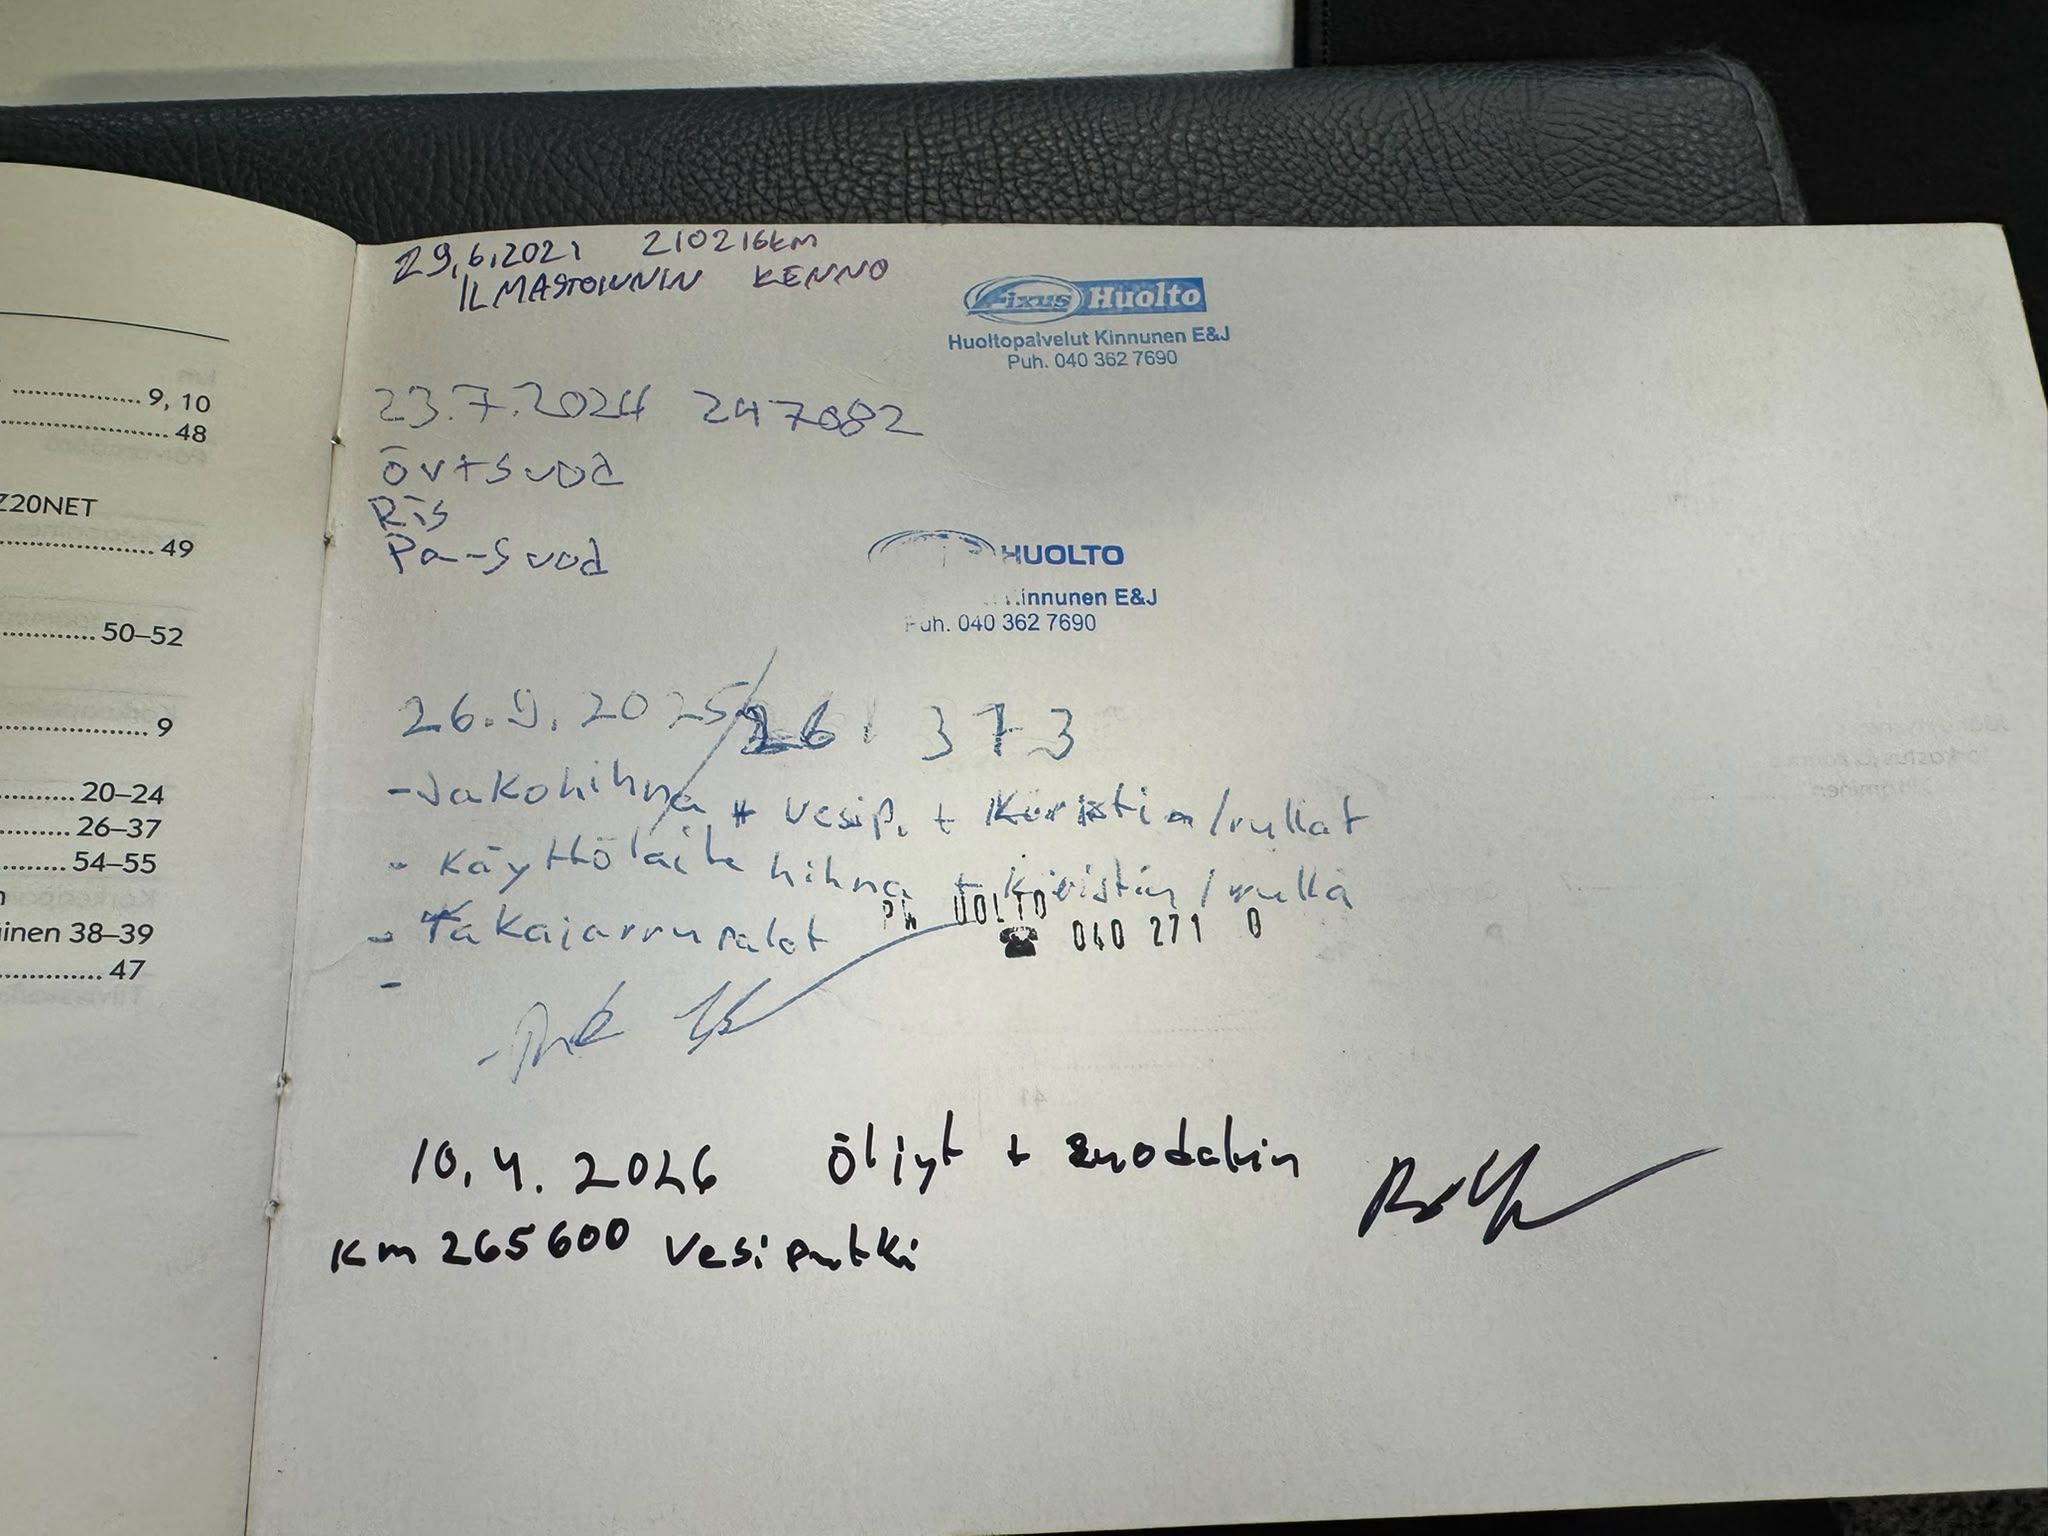 9, 10
48
Z20NET
49
50–52
9
20–24
26–37
54–55
inen 38–39
47
29.6.2021 210216km
ILMASTOINNIN KENNO
Fixus Huolto
Huoltopalvelut Kinnunen E&J
Puh. 040 362 7690
23.7.2024 247082
öv+suod
Ris
Pa-suod
HUOLTO
innunen E&J
Puh. 040 362 7690
26.9.2025 261 373
- Jakohihna + vesip. + Kiristin/rullat
- Käyttölaite hihna + Kiristin/rulla
- Takajarrupalat
HUOLTO
040 271 0
-
10.4.2026 Öljyt + suodatin
km 265600 vesiputki